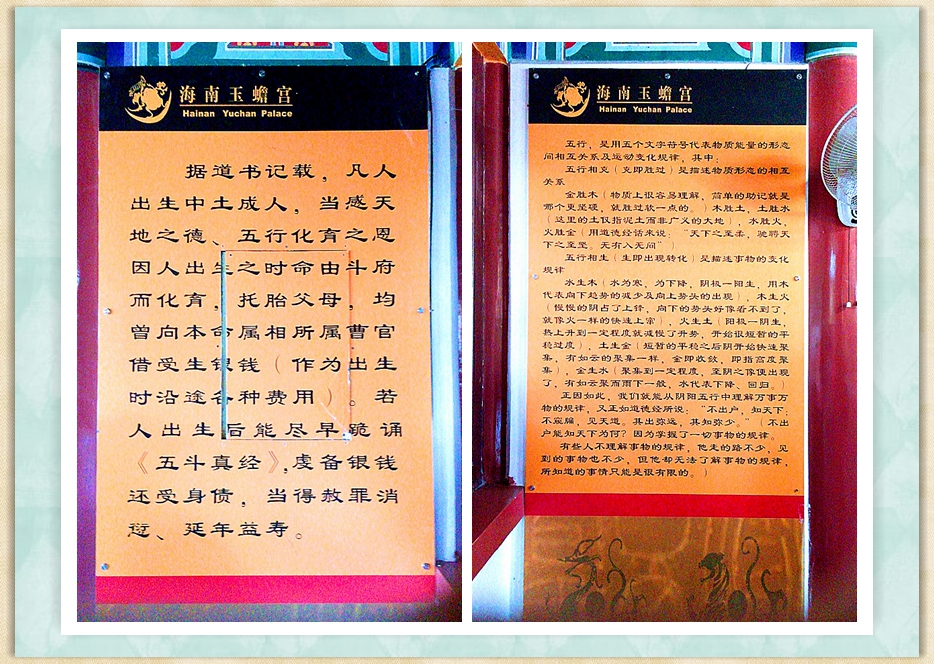 海南玉蟾宫
Hainan Yuchan Palace
据道书记载，凡人
出生中土成人，当感天
地之德、五行化育之恩
因人出生之时命由斗府
而化育，托胎父母，均
曾向本命属相所属曹官
借受生银钱（作为出生
时沿途各种费用）。若
人出生后能尽早跪诵
《五斗真经》,虔备银钱
还受身债，当得赦罪消
愆、延年益寿。
海南玉蟾宫
Hainan Yuchan Palace
五行，是用五个文字符号代表物质能量的形态
间相互关系及运动变化规律，其中：
五行相克（克即胜过）是描述物质形态的相互
关系
金胜木（物质上很容易理解，简单的助记就是
哪个更坚硬，就胜过软一点的。）木胜土，土胜水
（这里的土仅指泥土而非广义的大地），水胜火，
火胜金（用道德经话来说：“天下之至柔，驰骋天
下之至坚。无有入无间”）
五行相生（生即出现转化）是描述事物的变化
规律
水生木（水为寒，为下降，阴极一阳生，用木
代表向下趋势的减少及向上势头的出现），木生火
（慢慢的阴占了上锋，向下的势头好像看不到了，
就像火一样的快速上窜），火生土（阳极一阴生，
热上升到一定程度就减慢了升势，开始很短暂的平
稳过度），土生金（短暂的平稳之后阴开始快速聚
集，有如云的聚集一样，金即收敛，即指高度聚
集），金生水（聚集到一定程度，至阴之像便出现
了，有如云聚而雨下一般，水代表下降、回归。）
正因如此，我们就能从阴阳五行中理解万事万
物的规律，又正如道德经所说：“不出户，知天下；
不窥牖，见天道。其出弥远，其知弥少。”（不出
户能知天下为何？因为掌握了一切事物的规律。
有些人不理解事物的规律，他走的路不少，见
到的事物也不少，但他却无法了解事物的规律，
所知道的事情只能是很有限的。）